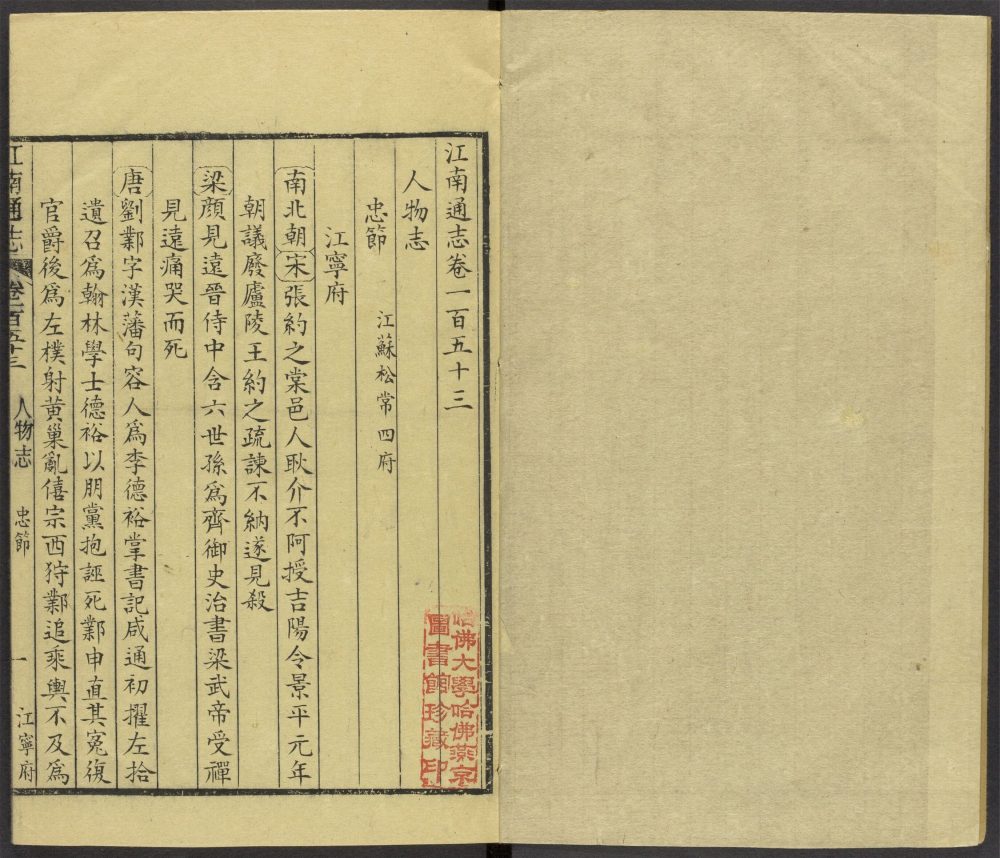 江南通志卷一百五十三
人物志
忠節 江蘇松常四府
江寧府
南北朝宋張約之棠邑人耿介不阿授吉陽令景平元年
朝議廢廬陵王約之疏諫不納遂見殺
梁顏見遠晉侍中含六世孫爲齊御史治書梁武帝受禪
見遠痛哭而死
唐劉鄴字漢藩句容人爲李德裕掌書記咸通初擢左拾
遺召爲翰林學士德裕以朋黨抱誣死鄴申直其冤復
官爵後爲左樸射黃巢亂僖宗西狩鄴追乘輿不及爲
江南通志 卷一百五十三 人物志 忠節 一 江寧府
哈佛大學哈佛燕京
圖書館珍藏印